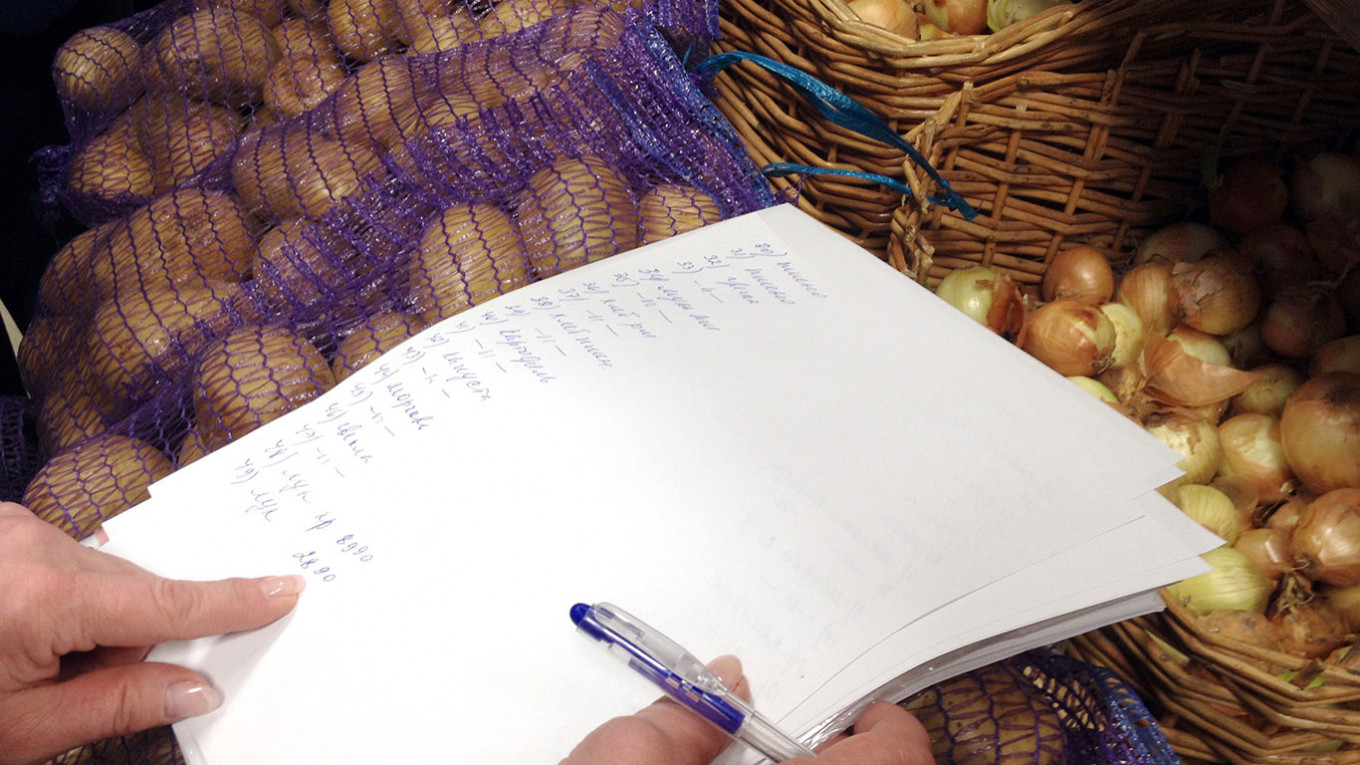 30) пшено
31) пшено
32) греча
33) -"-
34) мука
35) -"-
36) хлеб рж
37) -"-
38) хлеб пшен
-"-
40) картофель
41) -"-
42) капуста
43) -"-
44) морковь
45) -"-
46) свекла
47) -"-
48) лук кр 8990
49) лук 2890